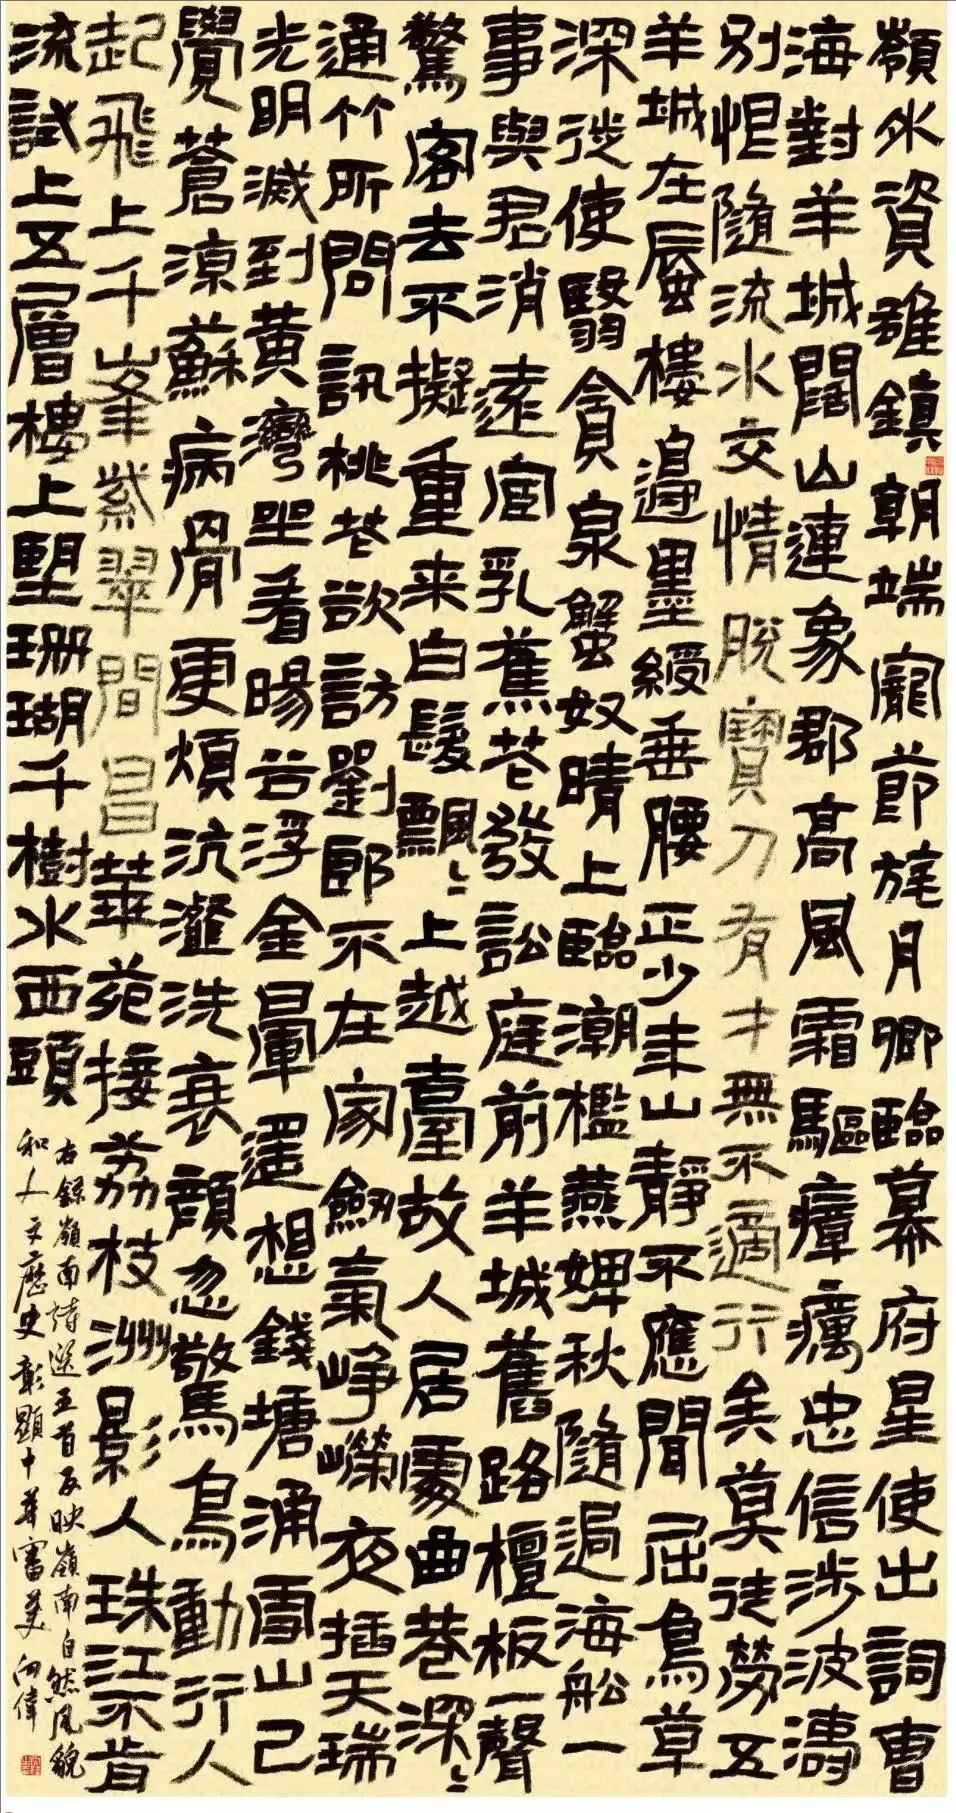 嶺外資雄鎮朝端寵節旄月卿臨幕府星使出詞曹
海對羊城闊山連象郡高風霜驅瘴癘忠信涉波濤
別恨隨流水交情脫寶刀有才無不適行矣莫徒勞五
羊城在蜃樓邊墨綬垂腰正少年山靜不應聞屈鳥草
深從使翳貪泉蟹奴晴上臨潮檻燕婢秋隨過海船一
事與君消遠宦乳蕉花發訟庭前羊城舊路檀板一聲
驚客去不擬重来白髮飄〻上越臺故人居處曲巷深〻
通竹所問訊桃花欲訪劉郎不在家劍氣崢嶸夜插天瑞
光明滅到黄灣坐看暘谷浮金暈遥想錢塘涌雪山已
覺蒼涼蘇病骨更煩沆瀣洗衰顏忽驚鳥動行人
起飛上千峯紫翠間昌華苑接荔枝洲影入珠江不肯
流試上五層樓上望珊瑚千樹水西頭
右錄嶺南詩選五首反映嶺南自然風貌
和人文歷史彰顯中華審美向偉